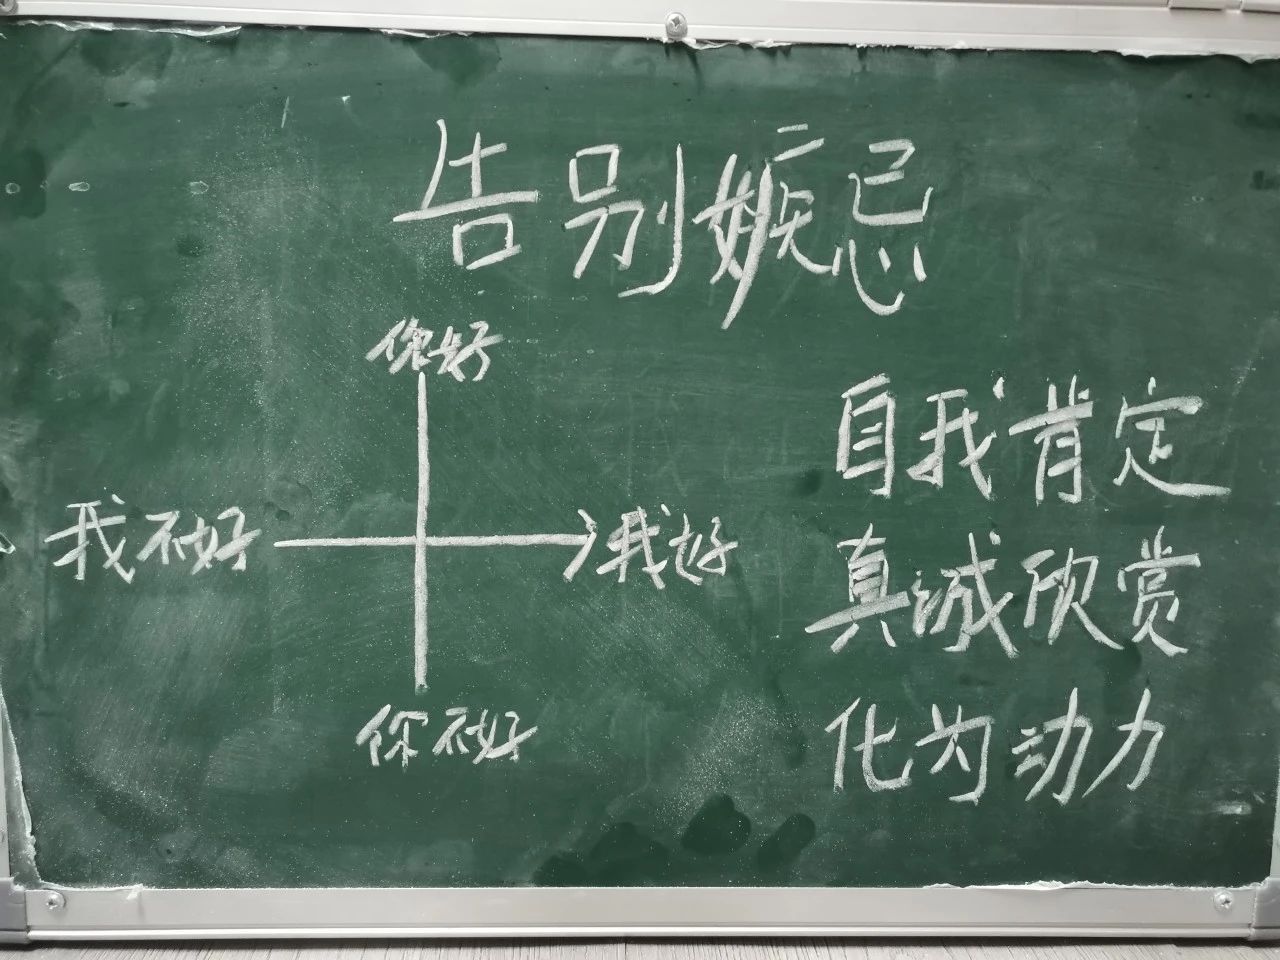 告别嫉忌
你好
自我肯定
我不好
我好
真诚欣赏
你不好
化为动力